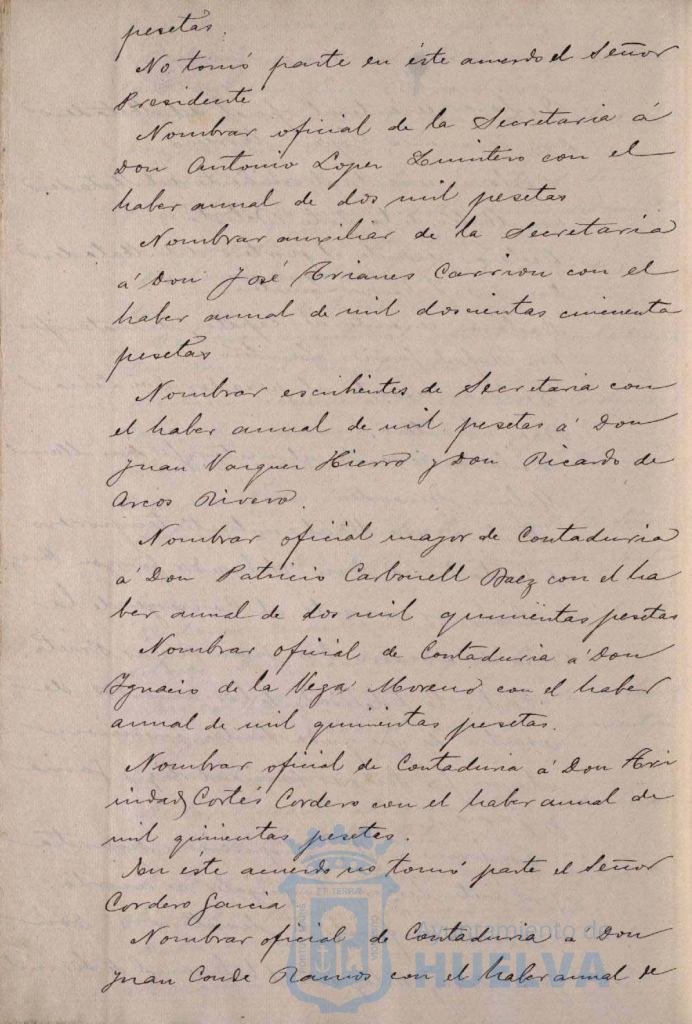 pesetas.
No tomó parte en éste acuerdo el Señor
Presidente
Nombrar oficial de la Secretaria á
Don Antonio Lopez Quintero con el
haber anual de dos mil pesetas
Nombrar auxiliar de la Secretaria
á Don José Trianes Carrion con el
haber anual de mil doscientas cincuenta
pesetas
Nombrar escribientes de Secretaria con
el haber anual de mil pesetas á Don
Juan Vazquez Hierro y Don Ricardo de
Arcos Rivero.
Nombrar oficial mayor de Contaduria
á Don Patricio Carbonell Baez con el ha
ber anual de dos mil quinientas pesetas
Nombrar oficial de Contaduria á Don
Ygnacio de la Vega Moreno con el haber
anual de mil quinientas pesetas.
Nombrar oficial de Contaduria á Don Tri
nidad Cortés Cordero con el haber anual de
mil quinientas pesetas.
En éste acuerdo no tomó parte el Señor
Cordero Garcia
Nombrar oficial de Contaduria a Don
Juan Conde Ramos con el haber anual de
Ayuntamiento de
HUELVA